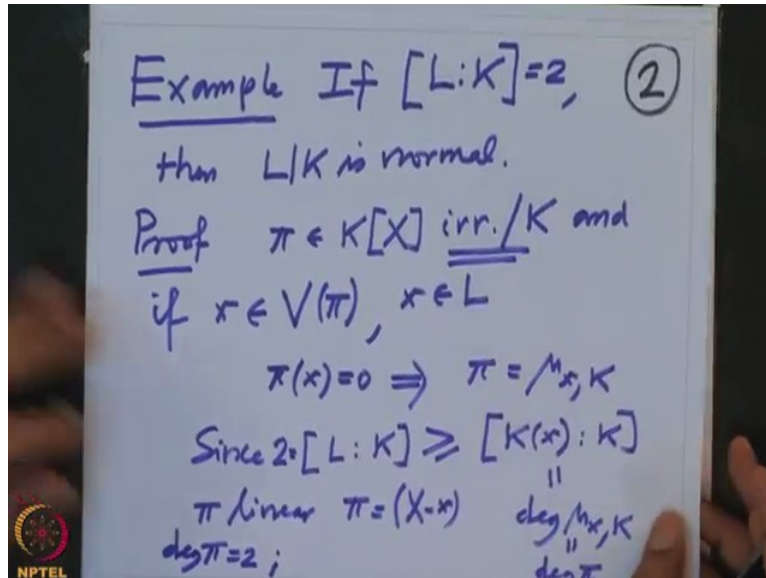 Example If [L:K]=2, ②
then L|K is normal.
Proof π ∈ K[X] irr./K and
if x ∈ V(π), x ∈ L
π(x)=0 ⇒ π = μx,K
Since 2=[L:K] ⩾ [K(x):K]
||
π linear π=(X-x) deg μx,K
||
deg π=2; deg π
NPTEL